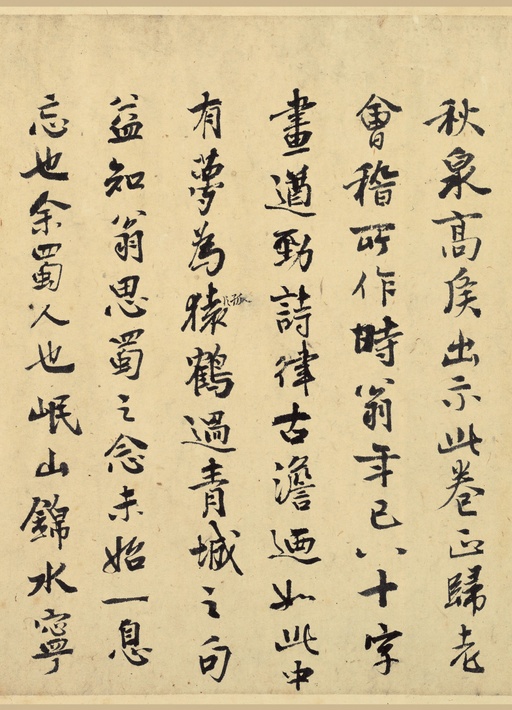 秋泉高矦出示此卷正歸老
會稽所作時翁年已八十字
畫遒勁詩律古澹迺如此中
有夢為猿孤鶴過青城之句
益知翁思蜀之念未始一息
忘也余蜀人也岷山錦水寧